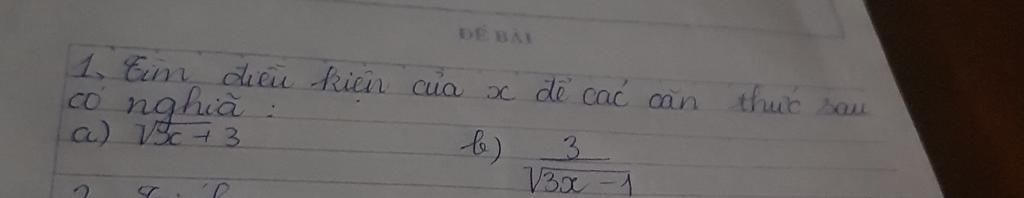 ĐỀ BÀI
1, Tìm điều kiện của x để các căn thức sau
có nghĩa :
a) √x + 3 b) 3/√3x - 1